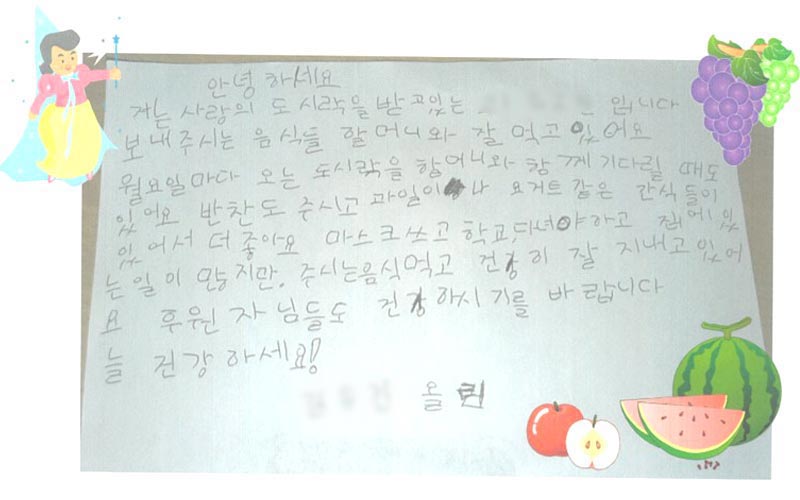 안녕하세요
저는 사랑의 도시락을 받고있는 입니다
보내주시는 음식들 할머니와 잘 먹고 있어요
월요일마다 오는 도시락을 할머니와 함께 기다릴 때도
있어요 반찬도 주시고 과일이나 요거트 같은 간식들이
있어서 더 좋아요 마스크쓰고 학교,다녀야하고 집에 있
는일이 많지만, 주시는음식먹고 건강히 잘 지내고 있어
요 후원자님들도 건강하시기를 바랍니다
늘 건강하세요!
올림